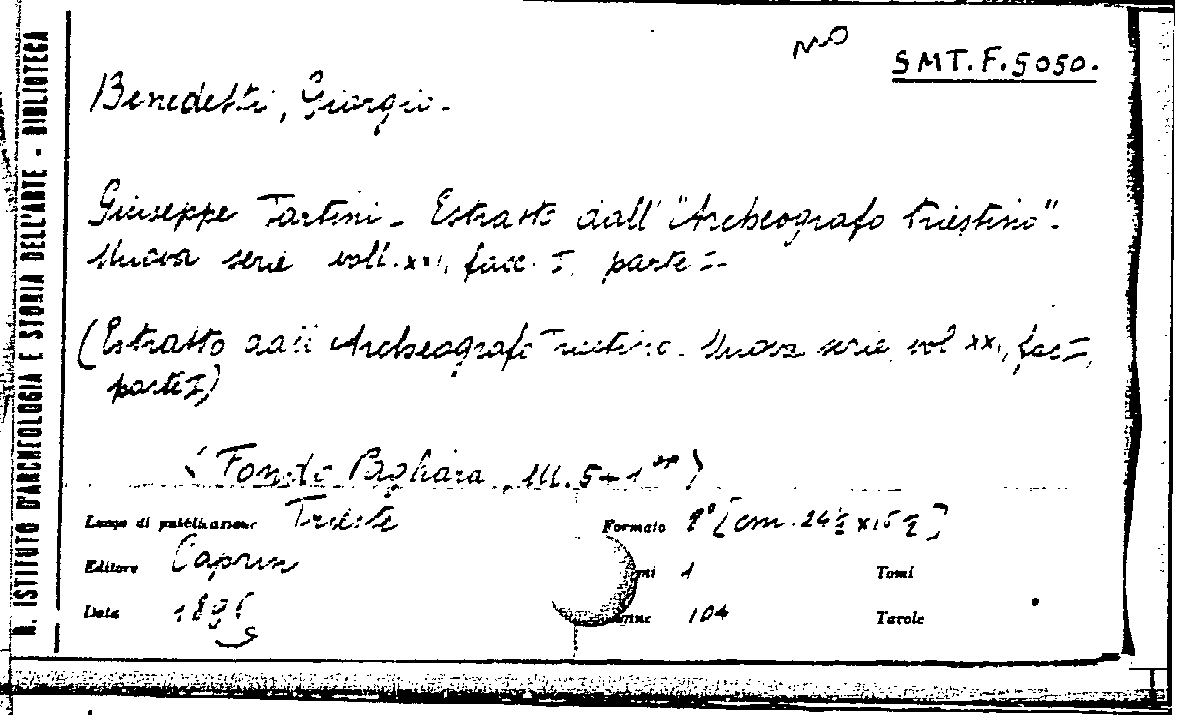 R. ISTITUTO D'ARCHEOLOGIA E STORIA DELL'ARTE - BIBLIOTECA
SMT. F. 5050.
Benedetti, Giorgio.
Giuseppe Tartini. Estratto dall' "Archeografo triestino".
Nuova serie voll. XXI, fasc. I, parte I.
(Estratto dall' Archeografo Triestino. Nuova serie, vol XXI, fasc I,
parte I)
(Fondo Pagliara, III.
Luogo di pubblicazione Trieste
Formato 8° [cm. 24½ x
Editore Caprin
1
Tomi
Data
104
Tavole